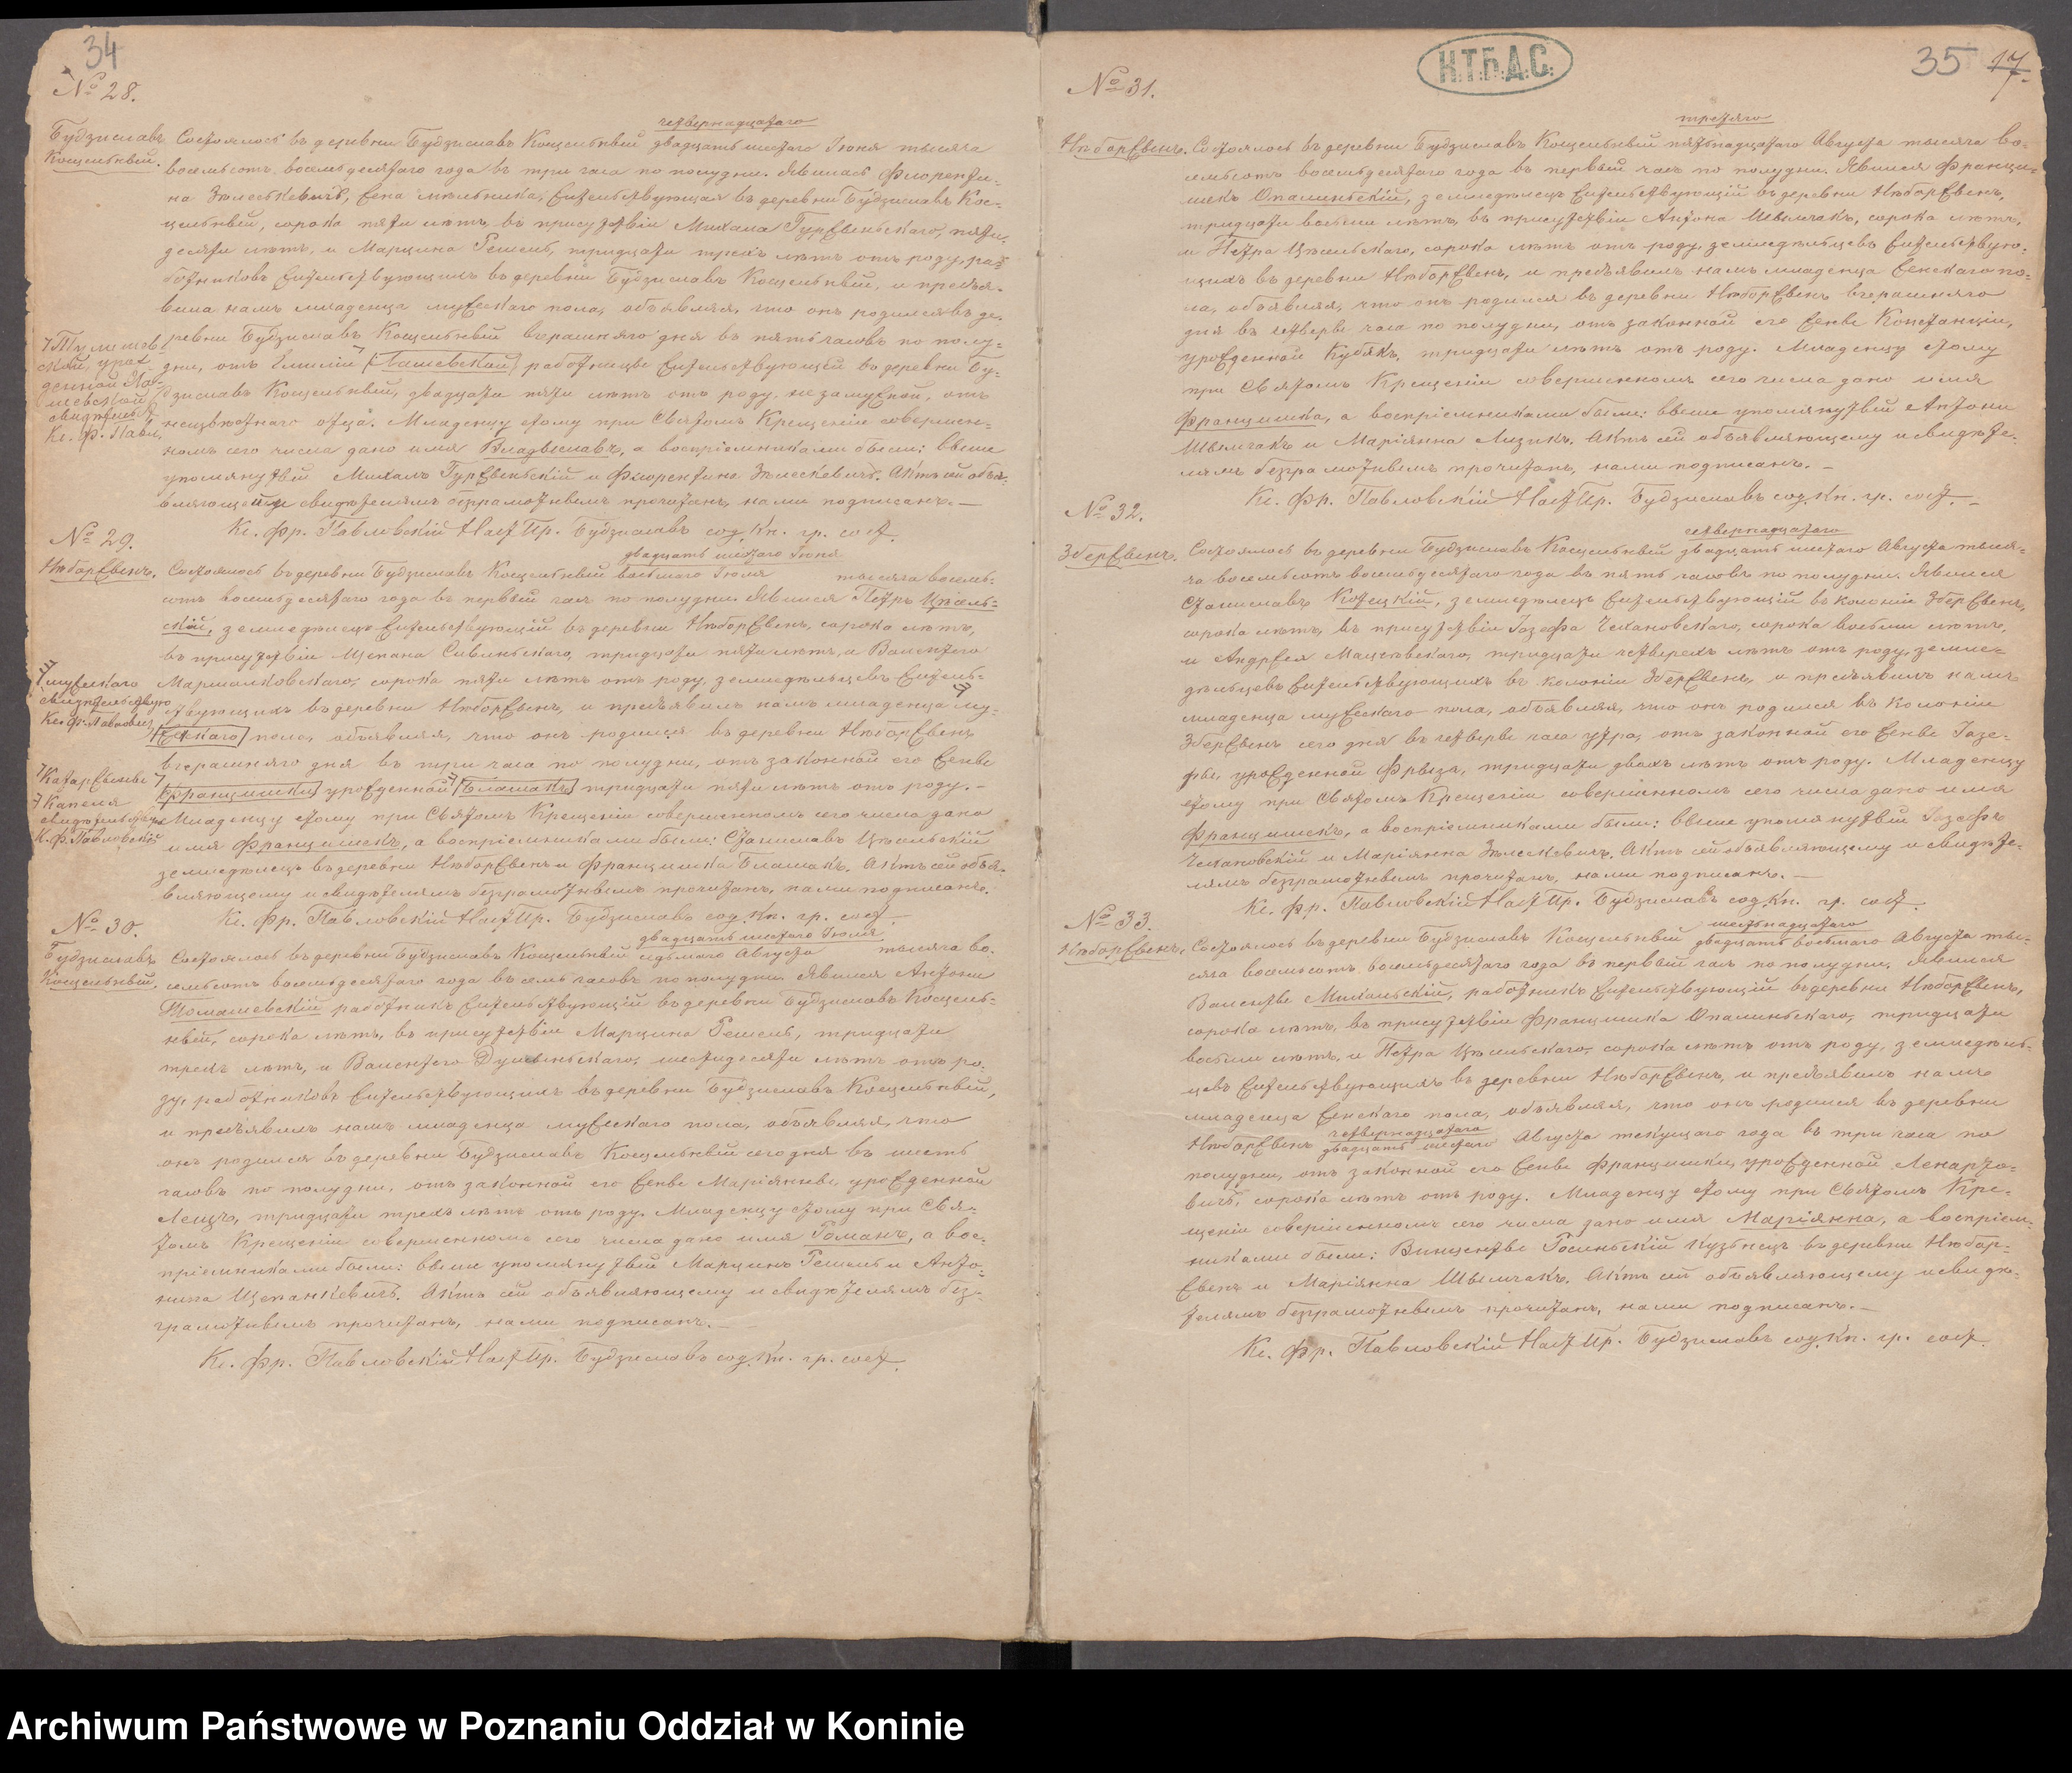 34
№ 28.
Будзиславъ
Косцельный.
четвернадцатаго
Состоялось въ деревни Будзиславъ Косцельный двадцать шестаго Іюня тысяча
восемьсотъ восемьдесятаго года въ три часа по полудни. Явилась Флоренти-
на Зѣлескевичъ, жена мѣльника, жительствующая въ деревни Будзиславъ Кос-
цельный, сорока пяти лѣтъ, въ присутствіи Михала Гурженьскаго, пяти-
десяти лѣтъ, и Марцина Гешель, тридцати трехъ лѣтъ отъ роду, ра-
ботниковъ жительствующихъ въ деревни Будзиславъ Косцельный, и предъя-
вила намъ младенца мужескаго пола, объявляя, что онъ родился въ де-
ревни Будзиславъ Косцельный вчерашняго дня въ пять часовъ по полу-
дни, отъ Емиліи Лашевской работницы жительствующей въ деревни Бу-
дзиславъ Косцельный, двадцати пяти лѣтъ отъ роду, не замужной, отъ
неизвѣстнаго отца. Младенцу этому при Святомъ Крещеніи совершен-
номъ сего числа дано имя Владыславъ, а воспріемниками были: выше
упомянутый Михалъ Гурженьскій и Флорентина Зѣлескевичъ. Актъ сей объя-
вляющей и свидѣтелямъ безграмотнымъ прочитанъ, нами подписанъ.—
Кс. Фр. Павловскій Наст Пр. Будзиславъ сод. Кн. гр. сост.
№ 29.
Нѣборжень.
двадцать шестаго Іюня
Состоялось въ деревни Будзиславъ Косцельный восьмаго Іюля тысяча восемь-
сотъ восемьдесятаго года въ первый часъ по полудни. Явился Петръ Цѣсль-
скій, земледѣлецъ жительствующій въ деревни Нѣборжень, сорока лѣтъ,
въ присутствіи Щепана Сивиньскаго, тридцати пяти лѣтъ, и Валентего
Маршалковскаго, сорока пяти лѣтъ отъ роду, земледѣльцевъ житель-
ствующихъ въ деревни Нѣборжень, и предъявилъ намъ младенца му-
жскаго пола, объявляя, что онъ родился въ деревни Нѣборжень
вчерашняго дня въ три часа по полудни, отъ законной его жены
Францишки урожденной Блашакъ тридцати пяти лѣтъ отъ роду.—
Младенцу этому при Святомъ Крещеніи совершенномъ сего числа дано
имя Францишекъ, а воспріемниками были: Станиславъ Цѣсельскій
земледѣлецъ въ деревни Нѣборжень и Францишка Блашакъ. Актъ сей объя-
вляющему и свидѣтелямъ безграмотнымъ прочитанъ, нами подписанъ.
мужескаго
свидѣтельствую
Кс. Ф. Павловскі
Катаржыны
Капеля
свидѣтельствую
К. Ф. Павловскій
Кс. Фр. Павловскій Наст Пр. Будзиславъ сод. Кн. гр. сост.
№ 30.
Будзиславъ
Косцельный.
двадцать шестаго Іюля
Состоялось въ деревни Будзиславъ Косцельный седьмаго Августа тысяча во-
семьсотъ восемьдесятаго года въ семь часовъ по полудни. Явился Антони
Томашевскій работникъ жительствующій въ деревни Будзиславъ Косцель-
ный, сорока лѣтъ, въ присутствіи Марцина Гешель, тридцати
трехъ лѣтъ, и Валентего Дулиньскаго, шестидесяти лѣтъ отъ ро-
ду, работниковъ жительствующихъ въ деревни Будзиславъ Косцельный,
и предъявилъ намъ младенца мужескаго пола, объявляя, что
онъ родился въ деревни Будзиславъ Косцельный сего дня въ шесть
часовъ по полудни, отъ законной его жены Маріянны, урожденной
Лещъ, тридцати трехъ лѣтъ отъ роду. Младенцу этому при Свя-
томъ Крещеніи совершенномъ сего числа дано имя Романъ, а вос-
пріемниками были: выше упомянутый Марцинъ Гешель и Анто-
нина Щепанкевичъ. Актъ сей объявляющему и свидѣтелямъ без-
грамотнымъ прочитанъ, нами подписанъ.—
Кс. Фр. Павловскій Наст Пр. Будзиславъ сод. Кн. гр. сост.
Н.Т.Б.Д.С.
35 17.
№ 31.
Нѣборжень.
третяго
Состоялось въ деревни Будзиславъ Косцельный пятьнадцатаго Августа тысяча во-
семьсотъ восемьдесятаго года въ первый часъ по полудни. Явился Франци-
шекъ Опалиньскій, земледѣлецъ жительствующій въ деревни Нѣборжень,
тридцати восьми лѣтъ, въ присутствіи Антона Швымчакъ, сорока лѣтъ,
и Петра Цѣсельскаго, сорока лѣтъ отъ роду, земледѣльцевъ жительствую-
щихъ въ деревни Нѣборжень, и предъявилъ намъ младенца женскаго по-
ла, объявляя, что онъ родился въ деревни Нѣборжень вчерашняго
дня въ четверы часа по полудни, отъ законной его жены Констанціи,
урожденной Кубякъ, тридцати лѣтъ отъ роду. Младенцу этому
при Святомъ Крещеніи совершенномъ сего числа дано имя
Францишка, а воспріемниками были: выше упомянутый Антони
Швымчакъ и Маріянна Лизикъ. Актъ сей объявляющему и свидѣте-
лямъ безграмотнымъ прочитанъ, нами подписанъ.—
Кс. Фр. Павловскій Наст Пр. Будзиславъ сод. Кн. гр. сост.—
№ 32.
Збержень.
четвернадцатаго
Состоялось въ деревни Будзиславъ Косцельный двадцать шестаго Августа тыся-
ча восемьсотъ восемьдесятаго года въ пять часовъ по полудни. Явился
Станиславъ Котецкій, земледѣлецъ жительствующій въ колоніи Збержень,
сорока лѣтъ, въ присутствіи Іозефа Чехановскаго, сорока восьми лѣтъ,
и Андржея Мацѣевскаго, тридцати четверехъ лѣтъ отъ роду, земле-
дѣльцевъ жительствующихъ въ колоніи Збержень, и предъявилъ намъ
младенца мужескаго пола, объявляя, что онъ родился въ колоніи
Збержень сего дня въ четверы часа утра, отъ законной его жены Іозе-
фы, урожденной Фрыза, тридцати двохъ лѣтъ отъ роду. Младенцу
этому при Святомъ Крещеніи совершенномъ сего числа дано имя
Францишекъ, а воспріемниками были: выше упомянутый Іозефъ
Чехановскій и Маріянна Зѣлескевичъ. Актъ сей объявляющему и свидѣте-
лямъ безграмотнымъ прочитанъ, нами подписанъ.—
Кс. Фр. Павловскій Наст Пр. Будзиславъ сод. Кн. гр. сост.
№ 33.
Нѣборжень.
шестьнадцатаго
Состоялось въ деревни Будзиславъ Косцельный двадцать восьмаго Августа ты-
сяча восемьсотъ восемьдесятаго года въ первый часъ по полудни. Явился
Валенты Михальскій, работникъ жительствующій въ деревни Нѣборжень,
сорока лѣтъ, въ присутствіи Францишка Опалиньскаго, тридцати
восьми лѣтъ, и Петра Цѣсельскаго, сорока лѣтъ отъ роду, земледѣль-
цевъ жительствующихъ въ деревни Нѣборжень, и предъявилъ намъ
младенца женскаго пола, объявляя, что онъ родился въ деревни
четвернадцатаго
Нѣборжень двадцать шестаго Августа текущаго года въ три часа по
полудни, отъ законной его жены Францишки, урожденной Ленарто-
вичъ, сорока лѣтъ отъ роду. Младенцу этому при Святомъ Кре-
щеніи совершенномъ сего числа дано имя Маріянна, а воспріем-
никами были: Винценты Росиньскій Кузьнецъ въ деревни Нѣбор-
жень и Маріянна Швымчакъ. Актъ сей объявляющему и свидѣ-
телямъ безграмотнымъ прочитанъ, нами подписанъ.—
Кс. Фр. Павловскій Наст Пр. Будзиславъ сод. Кн. гр. сост.
Archiwum Państwowe w Poznaniu Oddział w Koninie